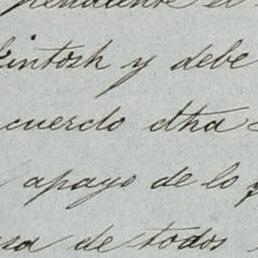 pendiente el
Kintosh y debe
cuerdo dha
apayo de lo
usa de todos